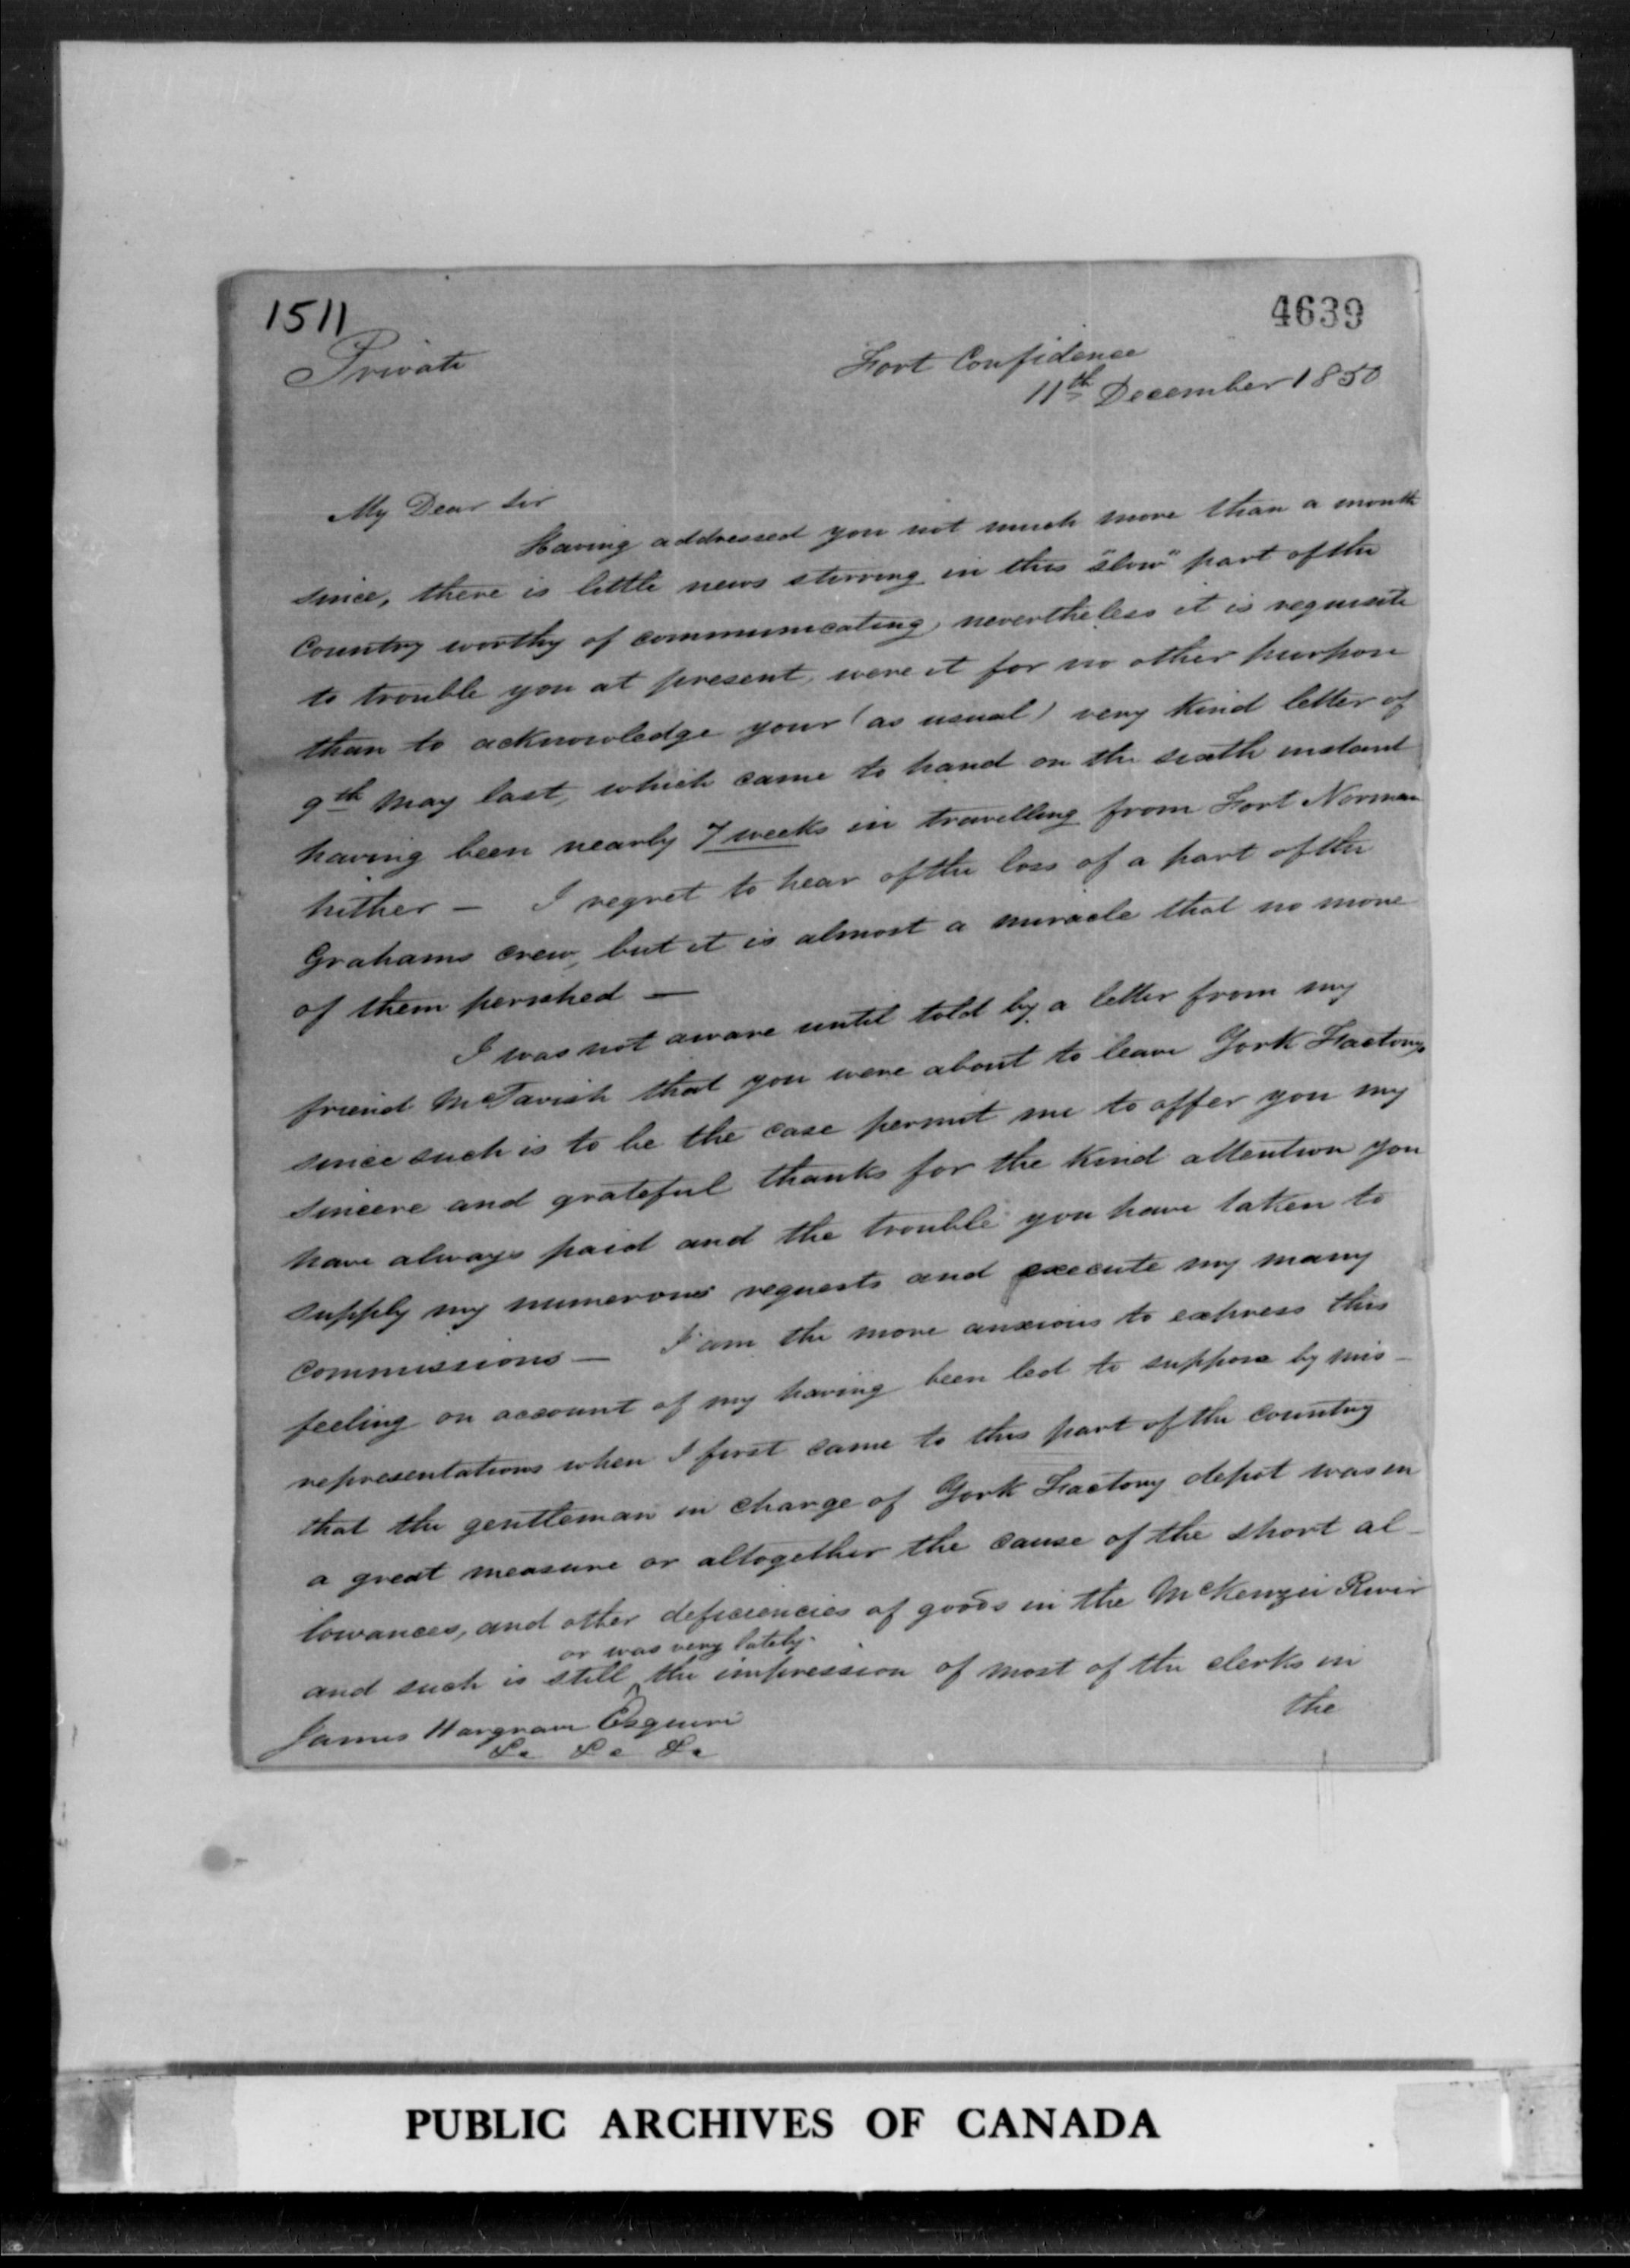 1511
4639
Private
Fort Confidence
11th December 1850
My Dear Sir
Having addressed you not much more than a month
since, there is little news stirring in this "slow" part of the
Country worthy of communicating, nevertheless it is requisite
to trouble you at present, were it for no other purpose
than to acknowledge your (as usual) very kind letter of
9th May last, which came to hand on the sixth instant
having been nearly 7 weeks in travelling from Fort Norman
hither — I regret to hear of the loss of a part of the
Grahams crew, but it is almost a miracle that no more
of them perished —
I was not aware until told by a letter from my
friend McTavish that you were about to leave York Factory,
since such is to be the case permit me to offer you my
sincere and grateful thanks for the kind attention you
have always paid and the trouble you have taken to
supply my numerous requests and execute my many
commissions — I am the more anxious to express this
feeling on account of my having been led to suppose by mis-
representations when I first came to this part of the country
that the gentleman in charge of York Factory depot was in
a great measure or altogether the cause of the short al-
lowances, and other deficiencies of goods in the McKenzie River
or was very lately
and such is still the impression of most of the clerks in
the
James Hargrave Esquire
&c &c &c
PUBLIC ARCHIVES OF CANADA